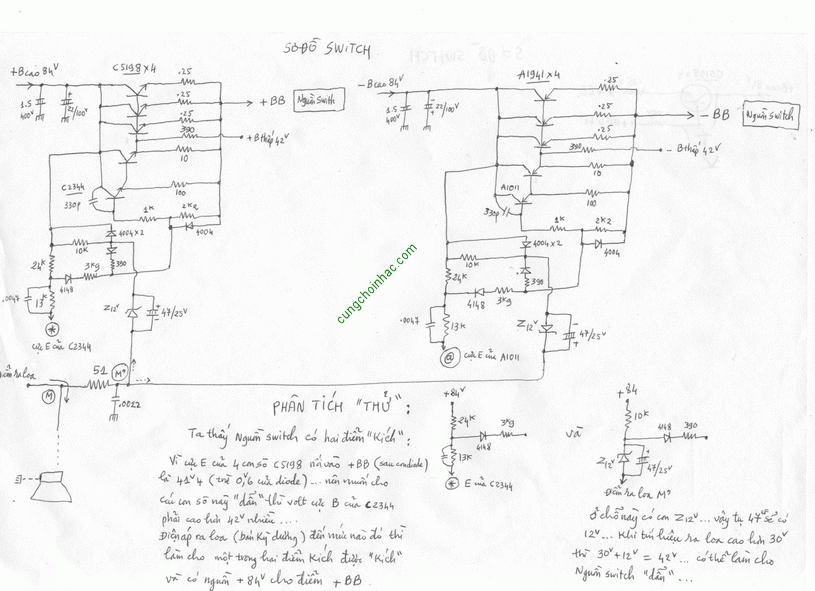 SƠ ĐỒ SWITCH
+Bcao 84V
C5198 x 4
.25
.25
.25
390
10
100
1.5
400V
22/100V
+BB
Nguồn Switch
+Bthấp 42V
C2344
330p
1K
2K2
4004
4004x2
10K
24K
390
4148
3K9
.0047
13K
Z12V
47/25V
cực E của C2344
điểm ra loa
51
M
M'
.0022
-Bcao 84V
A1941 x 4
.25
.25
.25
390
10
100
1.5
400V
22/100V
-BB
Nguồn Switch
-Bthấp 42V
A1011
330p
1K
2K2
4004
4004x2
10K
24K
390
4148
3K9
.0047
13K
Z12V
47/25V
@ cực E của A1011
cungchoinhac.com
PHÂN TÍCH "THỬ" :
Ta thấy Nguồn switch có hai điểm "Kích" :
Vì cực E của 4 con số C5198 nối vào +BB (sau con diode)
là 41V4 (trừ 0V6 của diode) ... nên muốn cho
các con số này "dẫn" thì volt cực B của C2344
phải cao hơn 42V nhiều ....
Điện áp ra loa (bán kỳ dương) đến mức nào đó thì
làm cho một trong hai điểm Kích được "Kích"
và có nguồn +84V cho điểm +BB.
+84V
24K
3K9
4148
13K
E của C2344
và
+84
10K
4148
390
Z12V
47/25V
Điểm ra loa M'
Ở chỗ này có con Z12V ... vậy tụ 47uF sẽ có
12V ... Khi tín hiệu ra loa cao hơn 30V
thì 30V+12V = 42V ... có thể làm cho
Nguồn switch "dẫn" ...